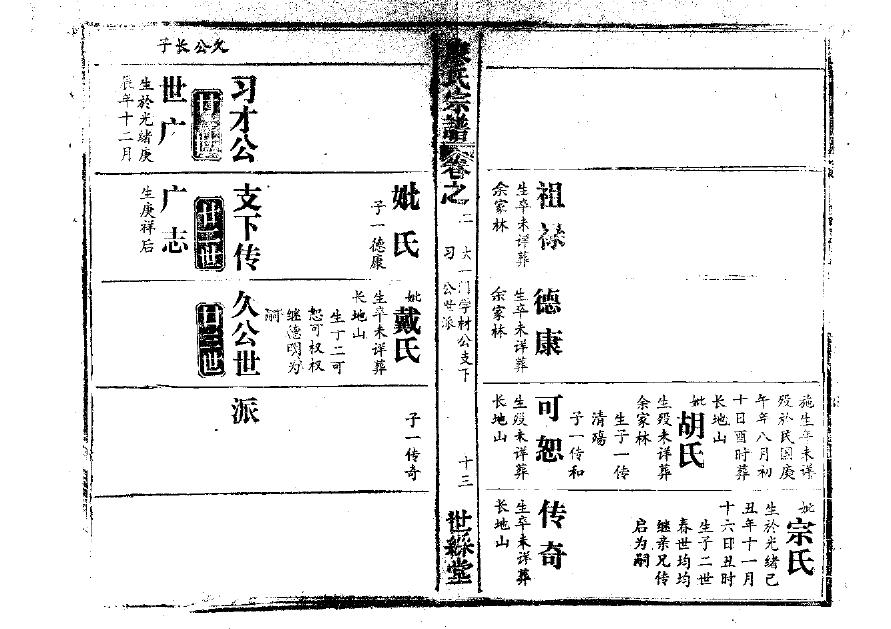 祖禄
生卒未详葬
余家林
德康
生卒未详葬
余家林
施生年未详
殁於民国庚
午年八月初
十日酉时葬
长地山
妣胡氏
生殁未详葬
余家林
生子一传
清殇
子一传和
可恕
生殁未详葬
长地山
妣宗氏
生於光绪己
丑年十一月
十六日丑时
生子二世
春世均均
继亲兄传
启为嗣
传奇
生卒未详葬
长地山
氏宗譜卷之二
大一门学材公支下
习 公世派
十三
世綵堂
妣氏
子一德康
妣戴氏
生卒未详葬
长地山
生丁二可
恕可权权
继德明为
嗣
子一传奇
习才公支下传久公世派
世二世
世三世
久公长子
世广
生於光绪庚
辰年十二月
广志
生庚祥后